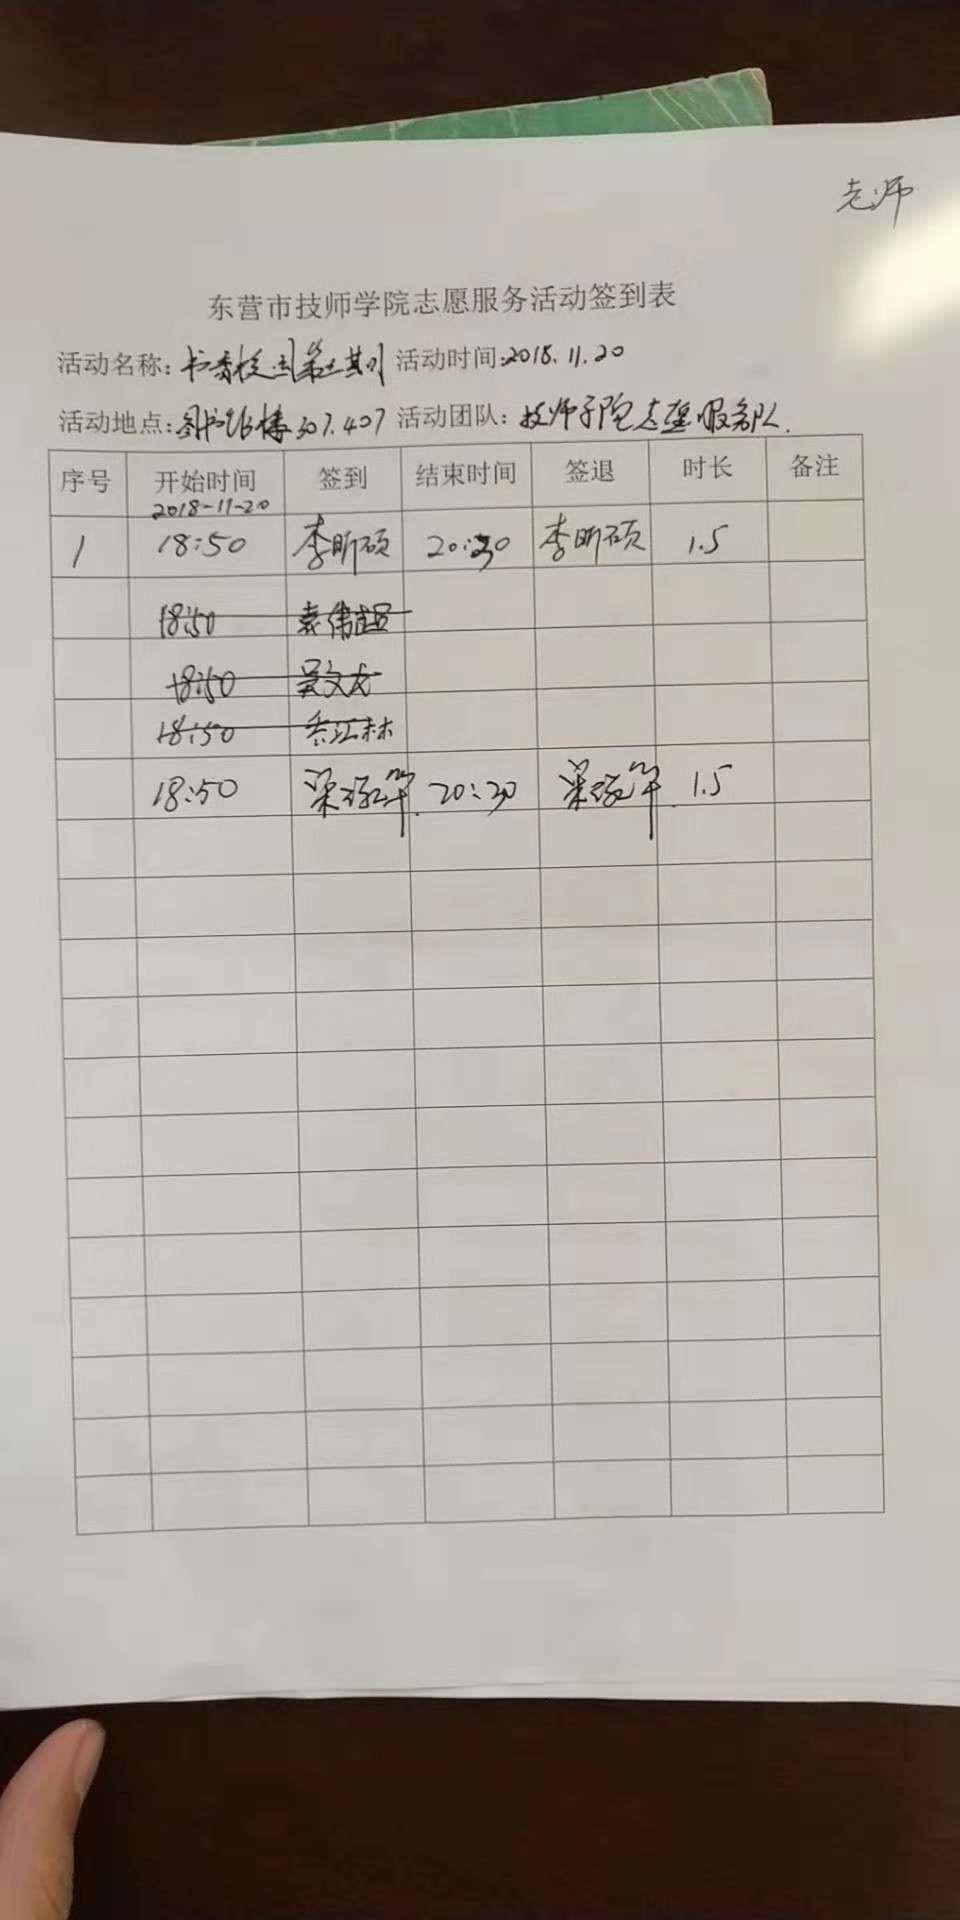 老师
东营市技师学院志愿服务活动签到表
活动名称:书香校园第七期 活动时间:2018.11.20
活动地点:图书馆楼307.407 活动团队:技师学院志愿服务队.
序号 开始时间 签到 结束时间 签退 时长 备注
2018-11-20
1 18:50 李昕硕 20:30 李昕硕 1.5
18:50 袁伟超
18:50 吴文友
18:50 江林
18:50 梁 华 20:30 梁 华 1.5